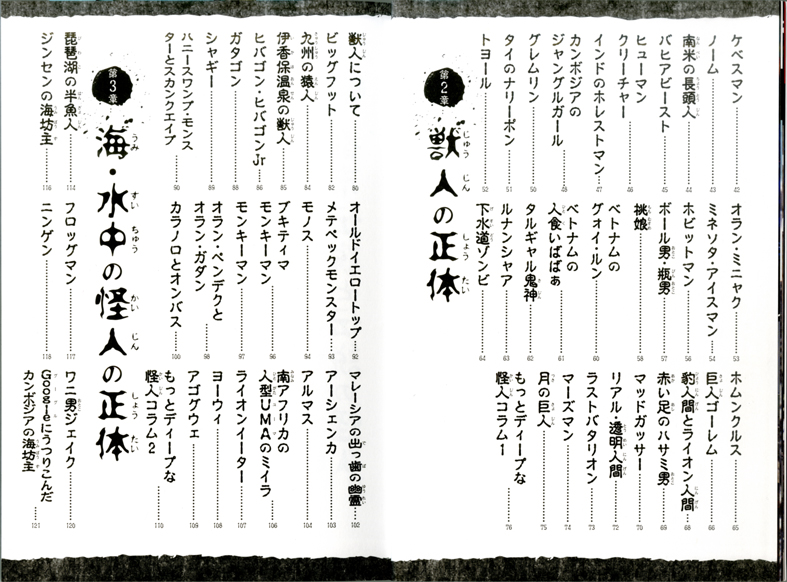 ケベスマン……42
ノーム……43
南米の長頭人……44
バヒアビースト……45
ヒューマン
クリーチャー……46
インドのホレストマン……47
カンボジアの
ジャングルガール……48
グレムリン……50
タイのナリーポン……51
トヨール……52
オラン・ミニャク……53
ミネソタ・アイスマン……54
ホビットマン……56
ボール男・瓶男……57
桃娘……58
ベトナムの
グォイ・ルン……60
ベトナムの
人食いばばぁ……61
タルギャル鬼神……62
ルナンシャア……63
下水道ゾンビ……64
ホムンクルス……65
巨人ゴーレム……66
豹人間とライオン人間……68
赤い足のハサミ男……69
マッドガッサー……70
リアル・透明人間……72
ラストバタリオン……73
マーズマン……74
月の巨人……75
もっとディープな
怪人コラム1……76
第2章
獣人の正体
じゅうじん しょうたい
獣人について……80
ビッグフット……82
九州の猿人……84
伊香保温泉の獣人……85
ヒバゴン・ヒバゴンJr……86
ガタゴン……88
シャギー……89
ハニースワンプ・モンス
ターとスカンクエイプ……90
オールドイエロートップ……92
メテペックモンスター……93
モノス……94
ブキティマ
モンキーマン……96
モンキーマン……97
オラン・ペンデクと
オラン・ガダン……98
カラノロとオンバス……100
マレーシアの出っ歯の幽霊……102
アーシェンカ……103
アルマス……104
南アフリカの
人型UMAのミイラ……106
ライオンイーター……107
ヨーウィ……108
アゴグウェ……109
もっとディープな
怪人コラム2……110
第3章
海・水中の怪人の正体
うみ すいちゅう かいじん しょうたい
琵琶湖の半魚人……114
ジンセンの海坊主……116
フロッグマン……117
ニンゲン……118
ワニ男ジェイク……120
Googleにうつりこんだ
カンボジアの海坊主……121